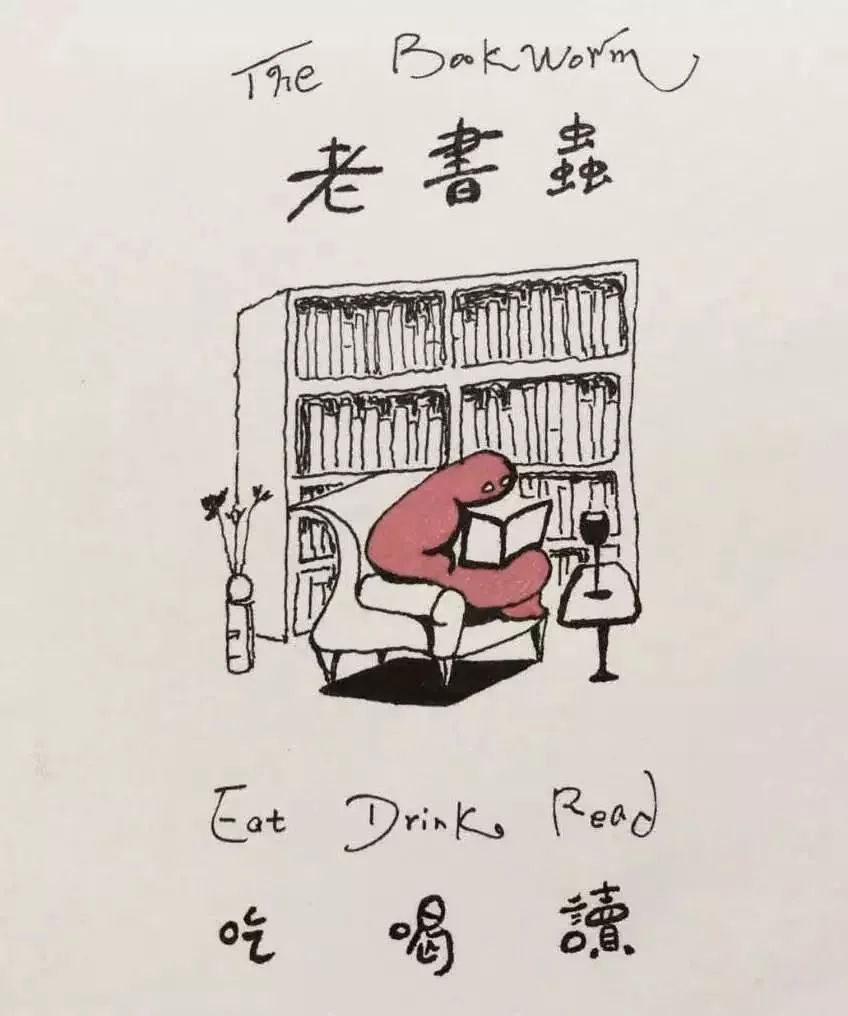 The Bookworm
老書蟲
Eat Drink Read
吃喝讀